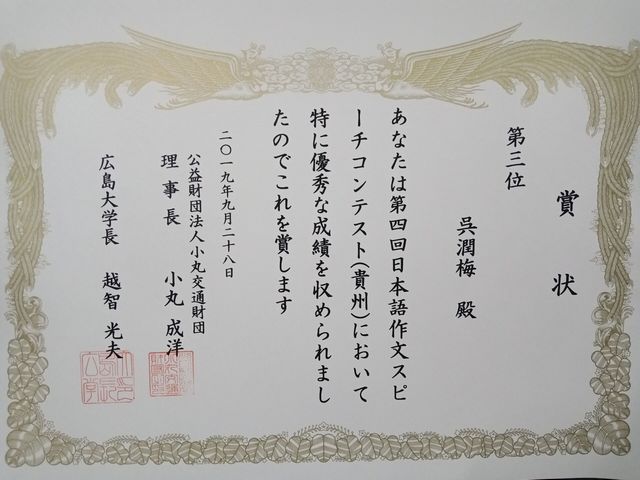 賞状
第三位
呉潤梅 殿
あなたは第四回日本語作文スピ
ーチコンテスト(貴州)において
特に優秀な成績を収められまし
たのでこれを賞します
二〇一九年九月二十八日
公益財団法人小丸交通財団
理事長 小丸 成洋
広島大学長 越智 光夫